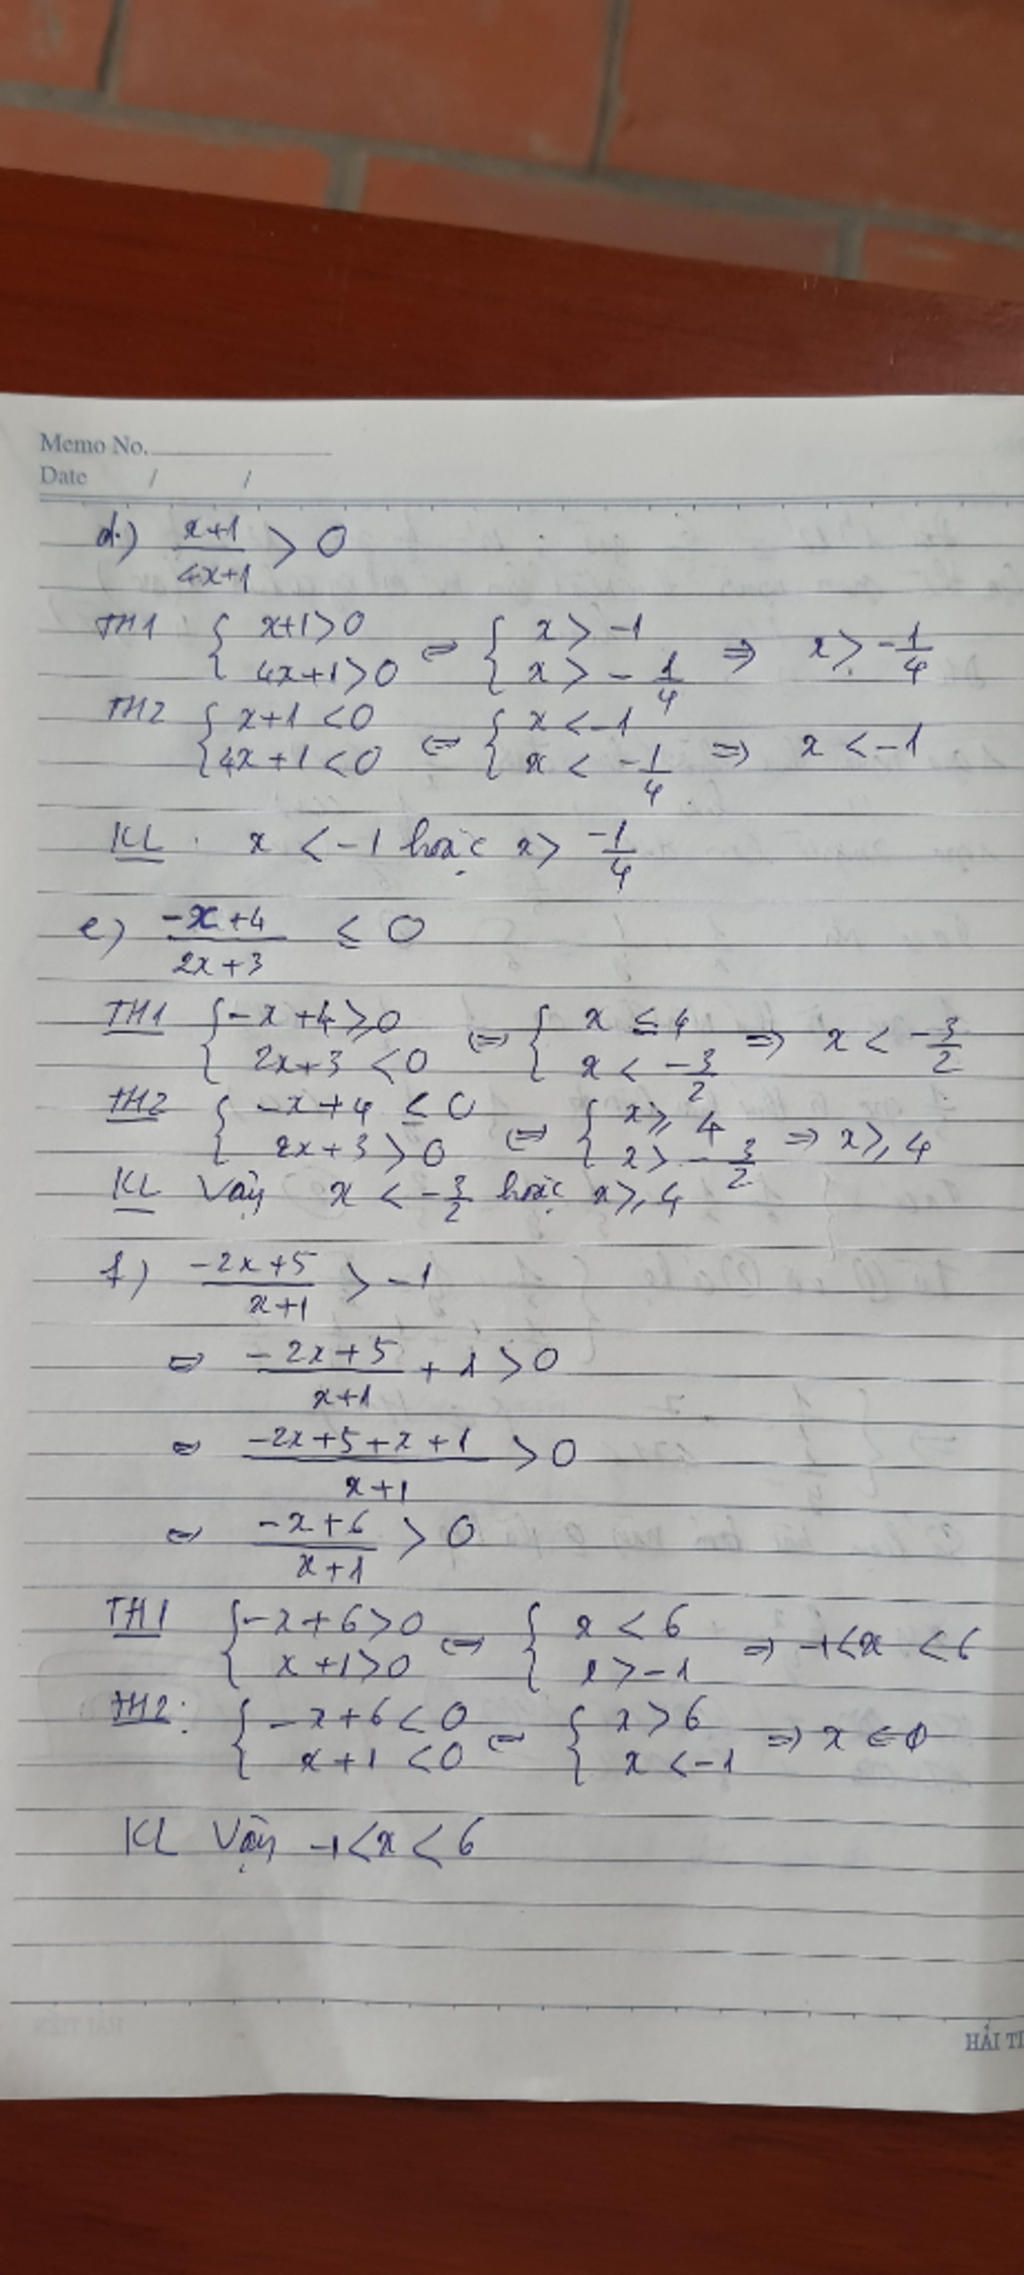 Memo No.
Date / /
d.) $\frac{x+1}{4x+1} > 0$
TH1 $\begin{cases} x+1>0 \\ 4x+1>0 \end{cases} \Leftrightarrow \begin{cases} x>-1 \\ x>-\frac{1}{4} \end{cases} \Rightarrow x>-\frac{1}{4}$
TH2 $\begin{cases} x+1<0 \\ 4x+1<0 \end{cases} \Leftrightarrow \begin{cases} x<-1 \\ x<-\frac{1}{4} \end{cases} \Rightarrow x<-1$
KL . x < -1 hoặc x > $\frac{-1}{4}$
e) $\frac{-x+4}{2x+3} \leq 0$
TH1 $\begin{cases} -x+4 \geq 0 \\ 2x+3<0 \end{cases} \Leftrightarrow \begin{cases} x \leq 4 \\ x<-\frac{3}{2} \end{cases} \Rightarrow x<-\frac{3}{2}$
TH2 $\begin{cases} -x+4 \leq 0 \\ 2x+3>0 \end{cases} \Leftrightarrow \begin{cases} x \geq 4 \\ x>-\frac{3}{2} \end{cases} \Rightarrow x \geq 4$
KL Vậy x < $-\frac{3}{2}$ hoặc x ≥ 4
f) $\frac{-2x+5}{x+1} > -1$
⇔ $\frac{-2x+5}{x+1} + 1 > 0$
⇔ $\frac{-2x+5+x+1}{x+1} > 0$
⇔ $\frac{-x+6}{x+1} > 0$
TH1 $\begin{cases} -x+6>0 \\ x+1>0 \end{cases} \Leftrightarrow \begin{cases} x<6 \\ x>-1 \end{cases} \Rightarrow -1<x<6$
TH2: $\begin{cases} -x+6<0 \\ x+1<0 \end{cases} \Leftrightarrow \begin{cases} x>6 \\ x<-1 \end{cases} \Rightarrow x \in \emptyset$
KL Vậy -1 < x < 6
HẢI